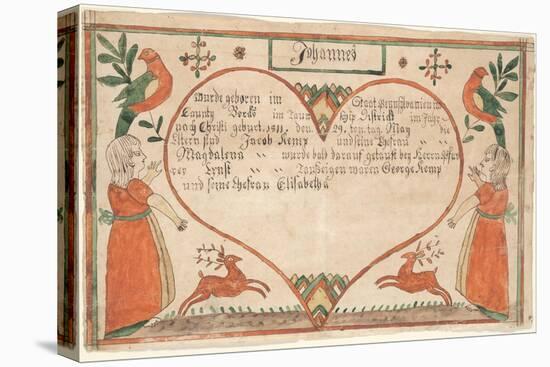 Johannes
Wurde geboren im Staat Pennsylvanien in
Caunty Bercks im Taunschip District im Jahr
nach Christi geburt. 1811. den 29. ten. tag. May die
Eltern sind Jacob Kemp und seine Ehefrau
Magdalena wurde bald darauf getauft bey Herrn
rer Ernst Taufzeigen waren George Kemp
und seine Ehefrau Elisabetha